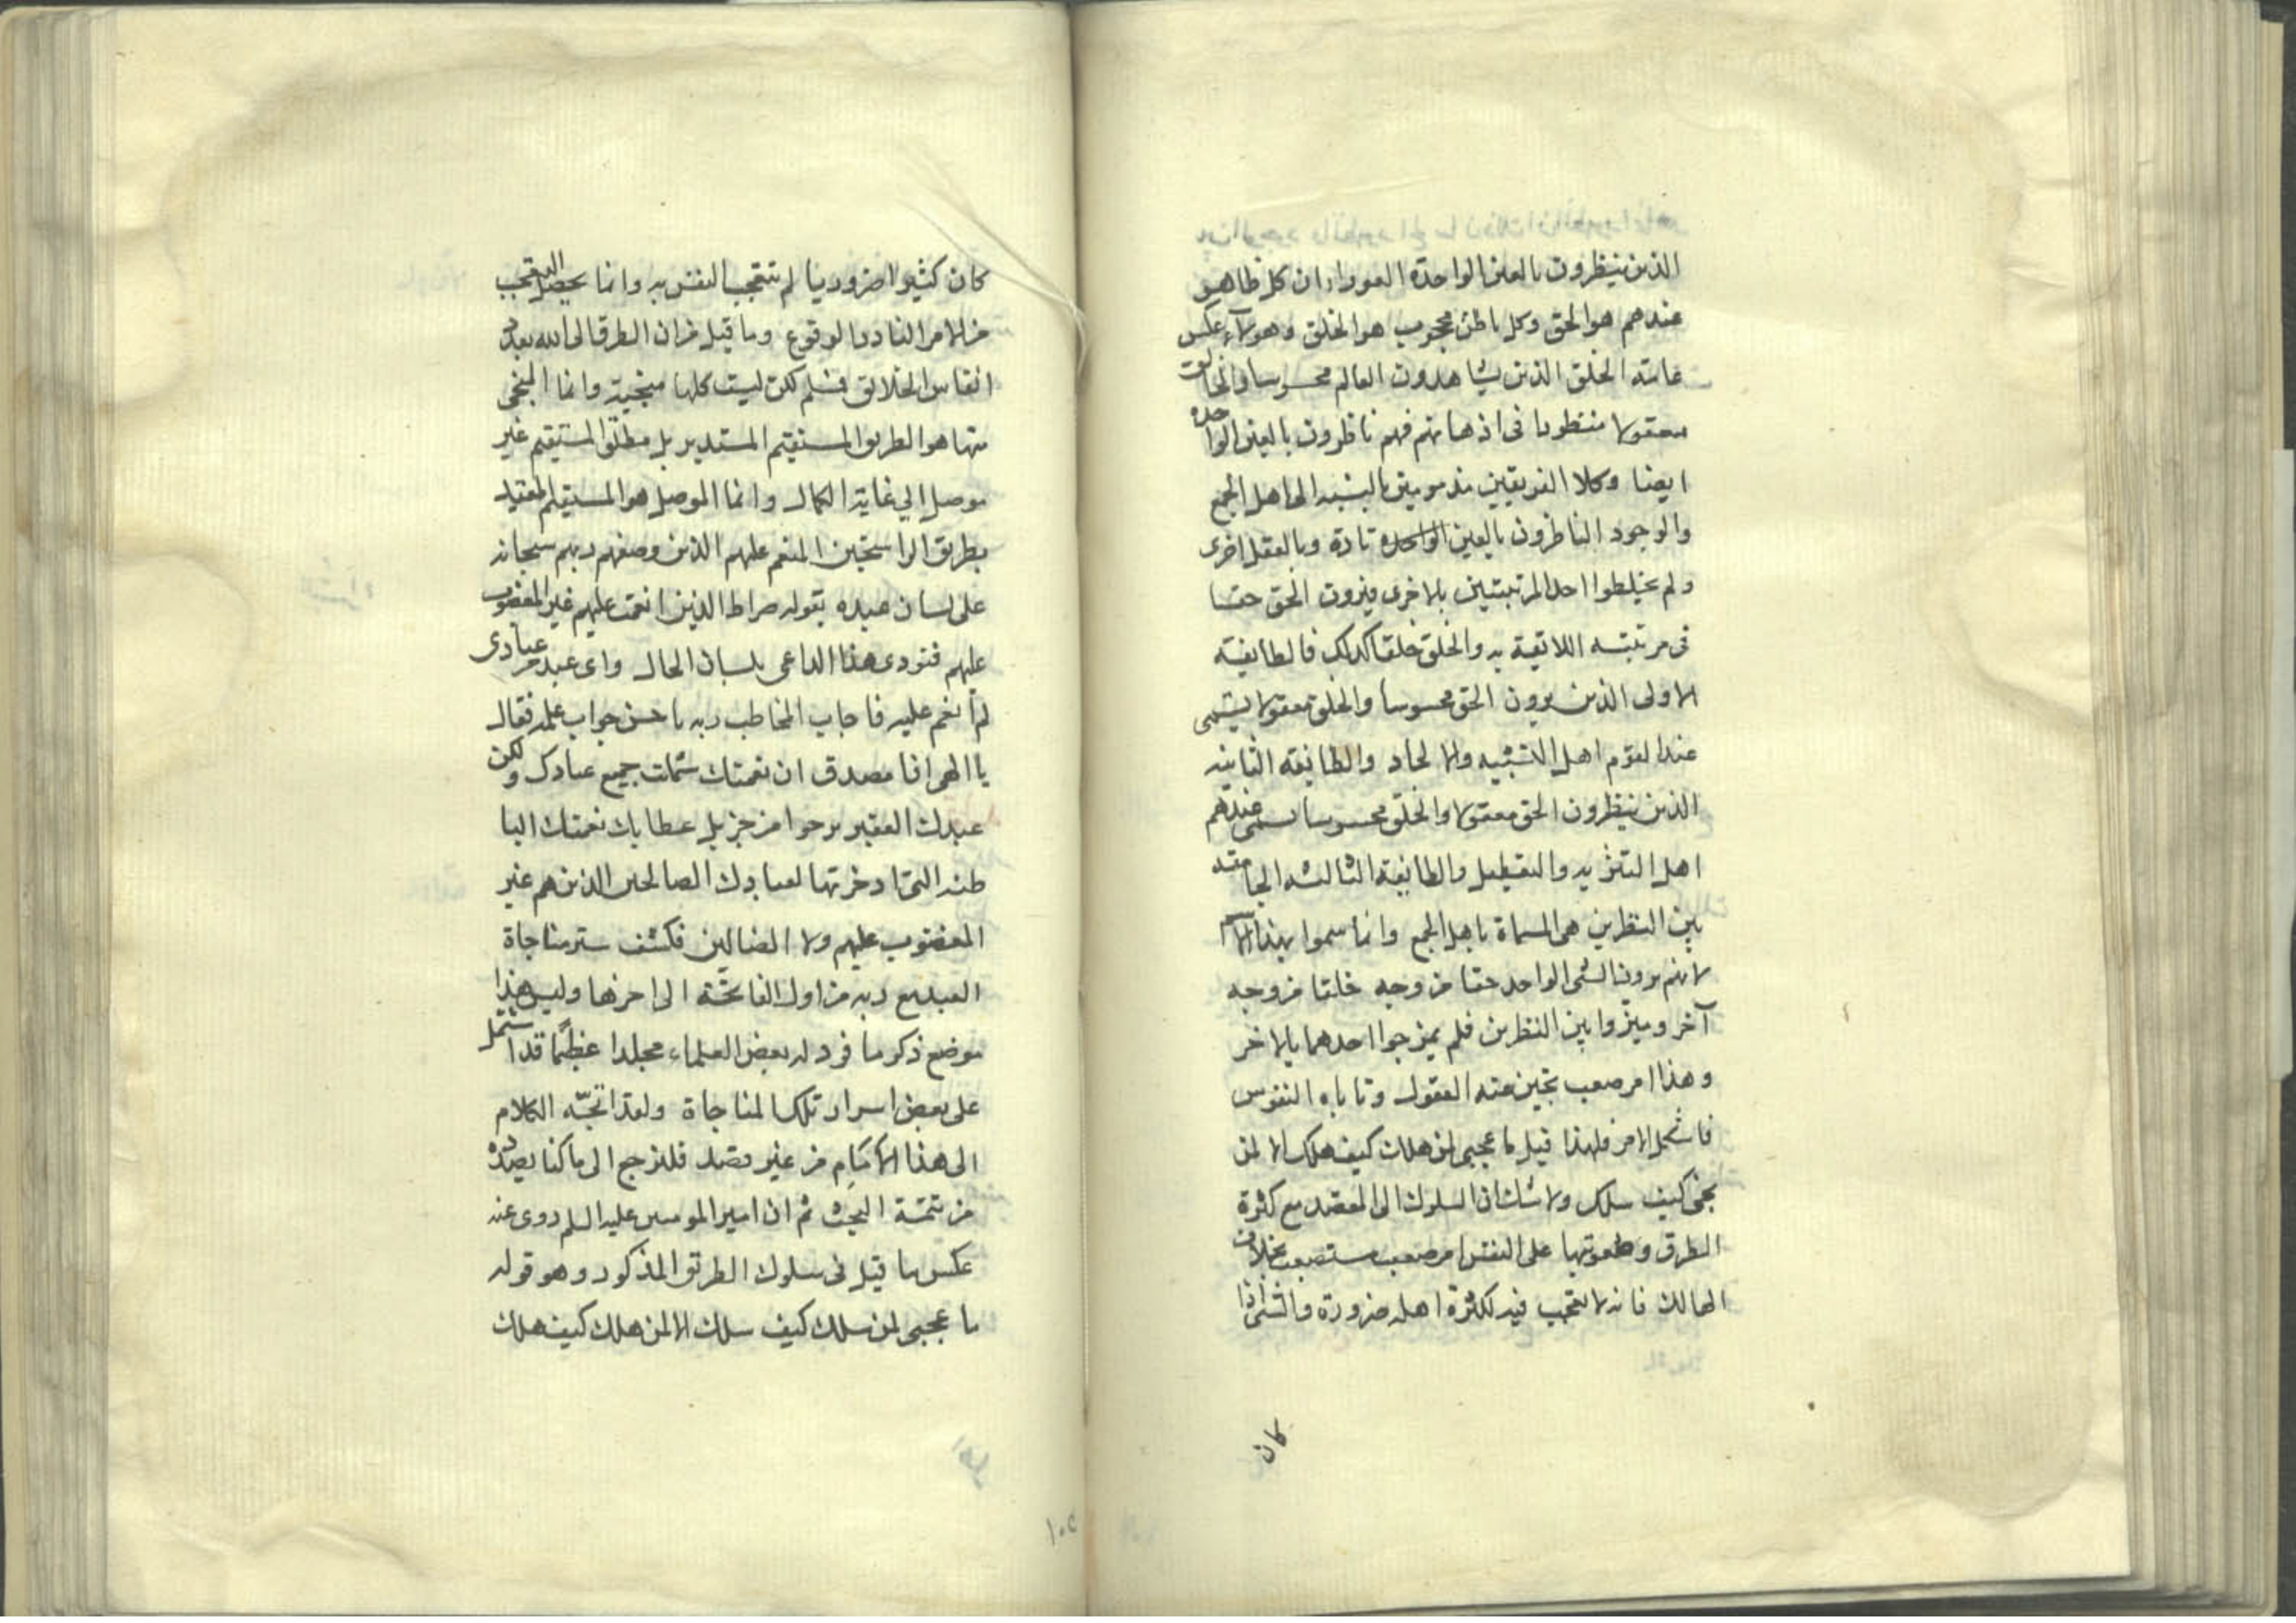 الذين ينظرون بالعين الواحدة العورا ان كل ظاهر
عندهم هو الحق وكل باطن محجوب هو الخلق وهولآء عكس
عامته الخلق الذين يشاهدون العالم محسوسا والخالق
معقولا منتظورا فى اذهانهم فهم ناظرون بالعين الواحده
ايضا وكلا الفريقين مذمومين بالنسبه الى اهل الجمع
والوجود الناظرون بالعين الواحده تارة وبالعقل اخرى
ولم يخلطوا احد المرتبتين بالاخرى فيرون الحق حقا
فى مرتبته اللائقة به والخلق خلقا كذلك فالطايفة
الاولى الذين يرون الحق محسوسا والخلق معقولا يسمى
عند القوم اهل التشبيه والالحاد والطايفه الثانيه
الذين ينظرون الحق معقولا والخلق محسوسا يسمى عندهم
اهل التنزيه والتعطيل والطايفة الثالثه الجامعة
بين النظرين هى المسماة باهل الجمع وانما سموا بهذا الاسم
لانهم يرون الشى الواحد حقا من وجه خلقا من وجه
آخر وميزوا بين النظرين فلم يمزجوا احدهما بالاخر
وهذا امر صعب تجبن عنه العقول وتاباه النفوس
فاشكل الامر فلهذا قيل ما عجبى لمن هلك كيف هلك الا لمن
نجى كيف سلك ولا شك ان السلوك الى المقصد مع كثرة
الطرق وصعوبتها على النفس امر صعب مستصعب بخلاف
الهالك فانه لا يتعجب فيه لكثرة اهله ضرورة والشى اذا
كان
كان كثيرا ضروريا لم تتعجب النفس به وانما يحصل التعجب
من الامر النادر الوقوع وما قيل من ان الطرق الى الله بعدد
انفاس الخلائق فمسلم لكن ليست كلها منجية وانما المنجى
منها هو الطريق المستقيم المستدير بل مطلق المستقيم غير
موصل الي غاية الكمال وانما الموصل هو المستقيم المقيد
بطريق الراسخين المنعم عليهم الذين وصفهم ربهم سبحانه
على لسان عبده بقوله صراط الذين انعمت عليهم غير المغضوب
عليهم فنودى هذا الداعى بلسان الحال واى عبد من عبادى
لم انعم عليه فاجاب المخاطب ربه باحسن جواب علمه فقال
يا الهى انا مصدق ان نعمتك شملت جميع عبادك ولكن
عبدك الفقير يرجوا من جزيل عطاياك نعمتك البا
طنه التى ادخرتها لعبادك الصالحين الذين هم غير
المغضوب عليهم ولا الضالين فكشف ستر مناجاة
العبد مع ربه من اول الفاتحة الى اخرها وليس هذا
موضع ذكر ما فرد له بعض العلماء مجلدا عظيما قد اشتمل
على بعض اسرار تلك المناجاة ولقد اتجه الكلام
الى هذا المقام من غير قصد فلنرجع الى ما كنا بصدده
من تتمة البحث ثم ان امير المومنين عليه السلم روى عنه
عكس ما قيل فى سلوك الطريق المذكور وهو قوله
ما عجبى لمن سلك كيف سلك الا لمن هلك كيف هلك
١٠٥